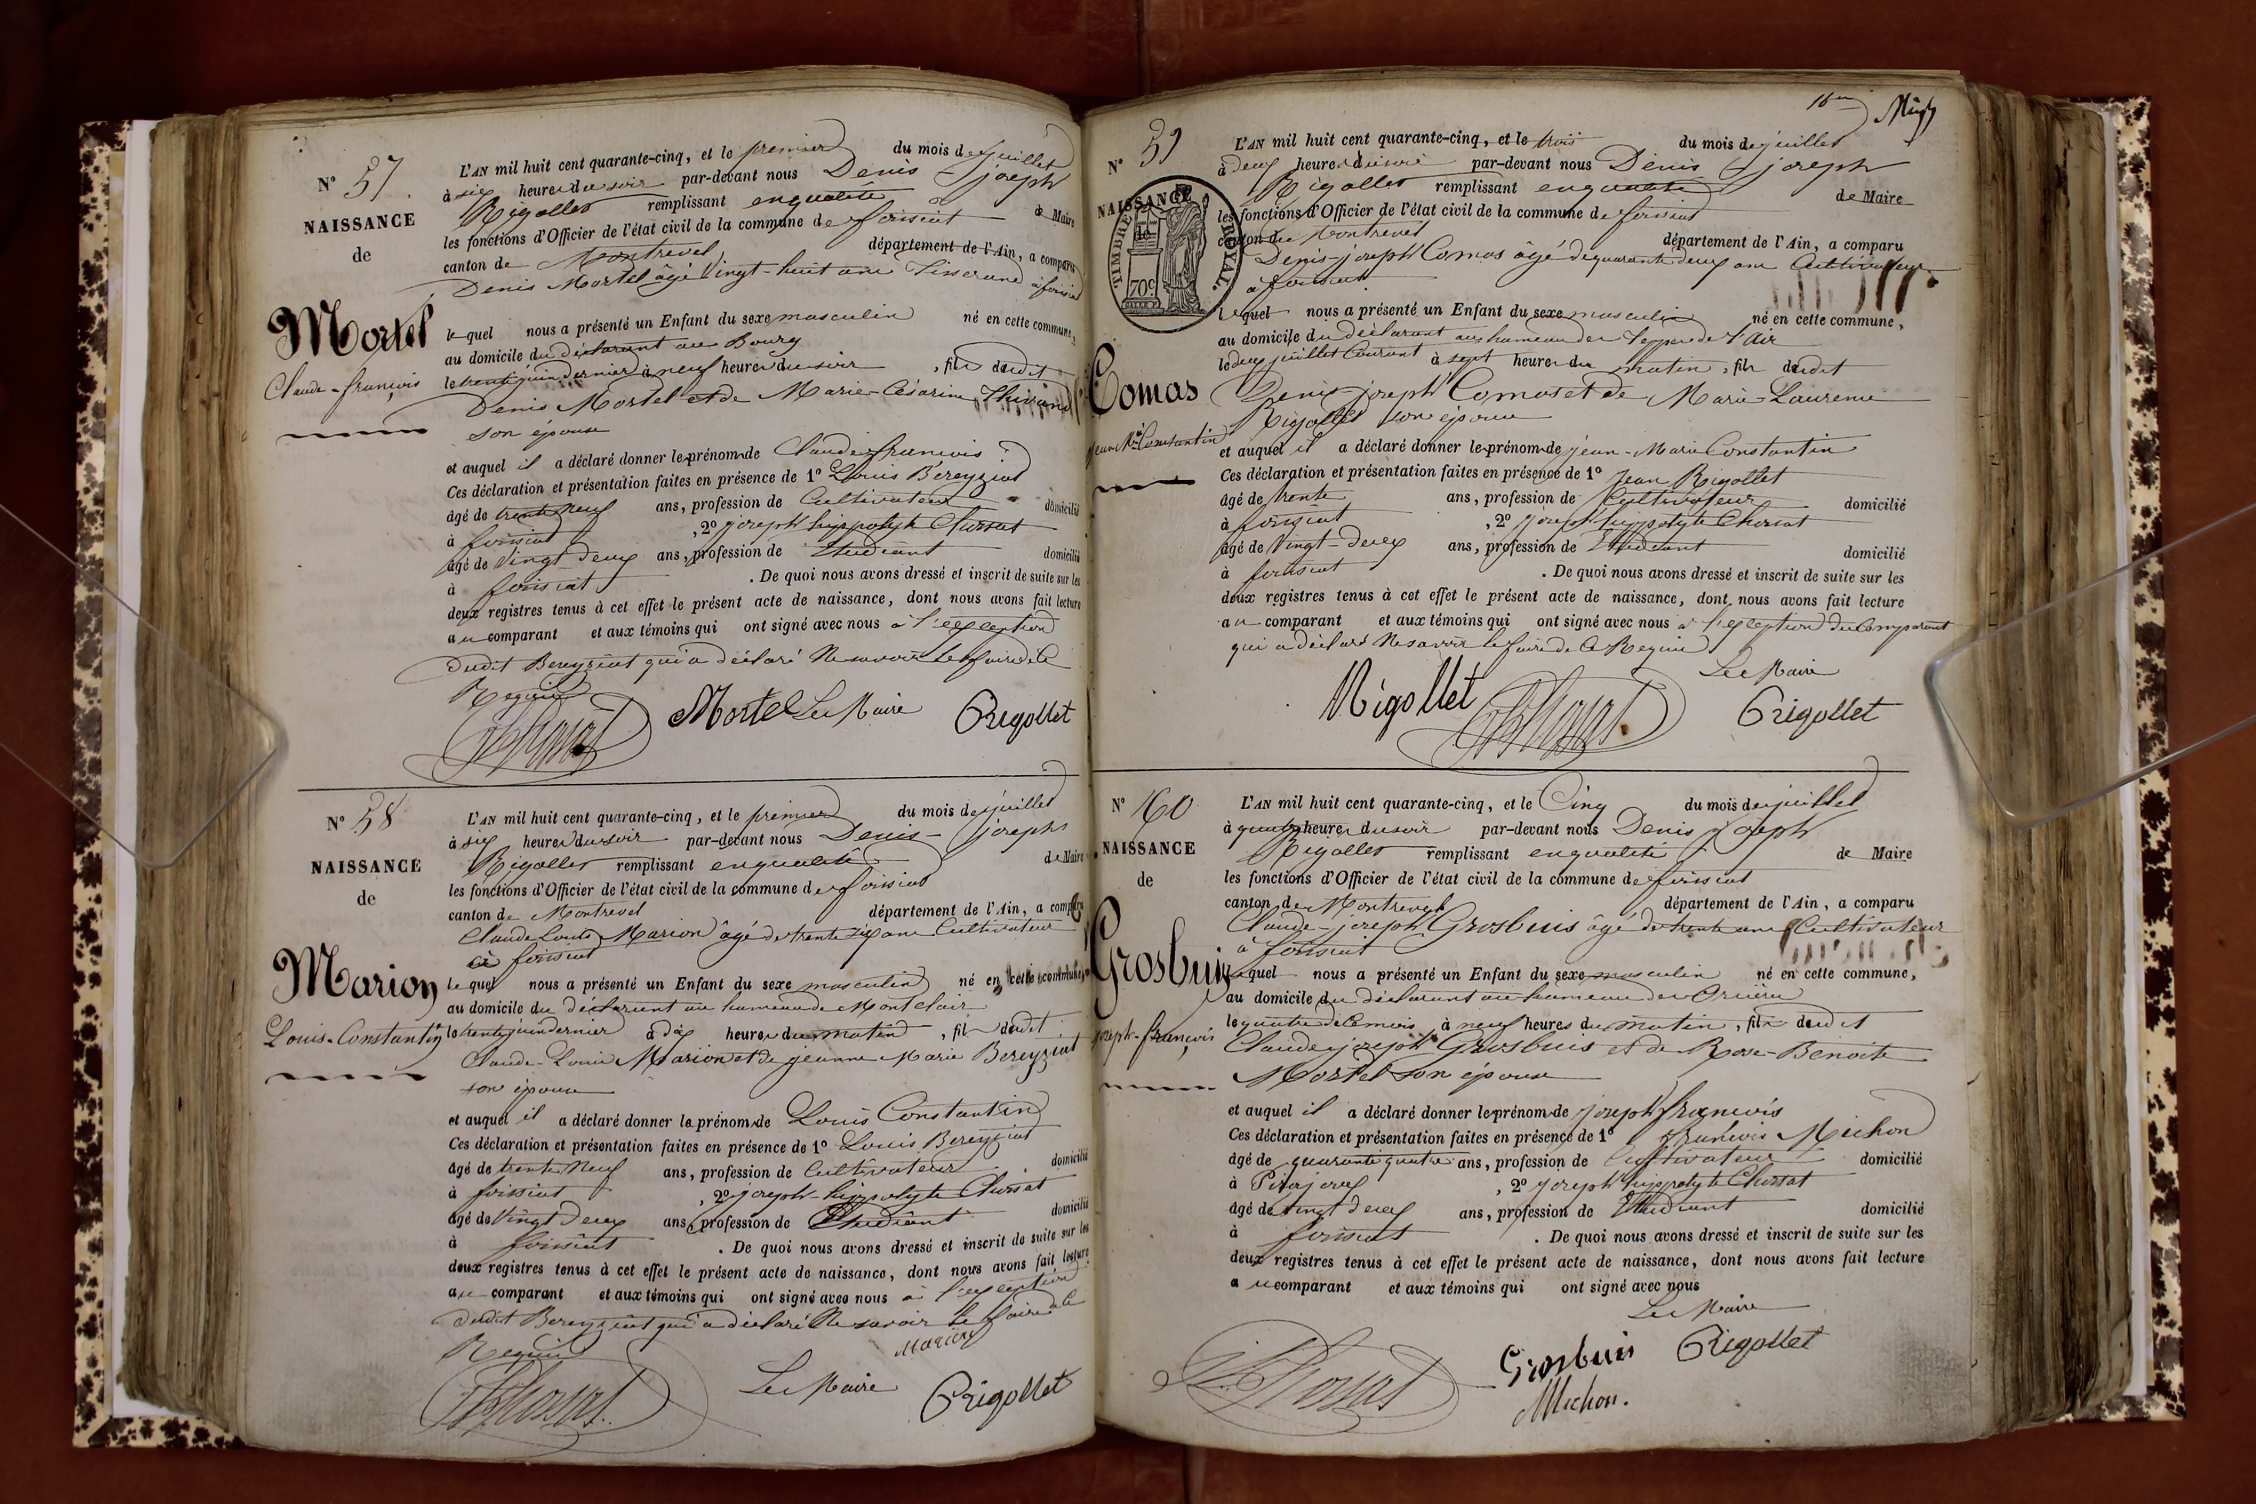 N° 57
NAISSANCE
de
Mortel
Claude-françois
L'AN mil huit cent quarante-cinq, et le premier du mois de juillet
à six heures du soir par-devant nous Denis-joseph
Rigollet remplissant en qualité de Maire
les fonctions d'Officier de l'état civil de la commune de foissiat
canton de Montrevel département de l'Ain, a comparu
Denis Mortel âgé Vingt-huit ans Tisserand à foissiat
lequel nous a présenté un Enfant du sexe masculin né en cette commune,
au domicile du déclarant au Bourg
le trente juin dernier à neuf heures du soir, fils dudit
Denis Mortel et de Marie-Césarine
son épouse
et auquel il a déclaré donner le prénom de Claude françois
Ces déclaration et présentation faites en présence de 1° Louis Bereyziat
âgé de trente neuf ans, profession de Cultivateur domicilié
à foissiat, 2° joseph hyppolyte Chossat
âgé de Vingt-deux ans, profession de Etudiant domicilié
à foissiat. De quoi nous avons dressé et inscrit de suite sur les
deux registres tenus à cet effet le présent acte de naissance, dont nous avons fait lecture
au comparant et aux témoins qui ont signé avec nous à l'exception
dudit Bereyziat qui a déclaré Ne savoir le faire de ce
Requis
Chossat Mortel Le Maire Rigollet
N° 58
NAISSANCE
de
Marion
Louis-Constantin
L'AN mil huit cent quarante-cinq, et le premier du mois de juillet
à six heures du soir par-devant nous Denis-joseph
Rigollet remplissant en qualité de Maire
les fonctions d'Officier de l'état civil de la commune de foissiat
canton de Montrevel département de l'Ain, a comparu
Claude Louis Marion âgé de trente six ans Cultivateur
à foissiat
lequel nous a présenté un Enfant du sexe masculin né en cette commune,
au domicile du déclarant au hameau de Montclair
le trente juin dernier à dix heures du matin, fils dudit
Claude-Louis Marion et de jeanne Marie Bereyziat
son épouse
et auquel il a déclaré donner le prénom de Louis Constantin
Ces déclaration et présentation faites en présence de 1° Louis Bereyziat
âgé de trente Neuf ans, profession de Cultivateur domicilié
à foissiat, 2° joseph-hippolyte Chossat
âgé de Vingt deux ans, profession de Etudiant domicilié
à foissiat. De quoi nous avons dressé et inscrit de suite sur les
deux registres tenus à cet effet le présent acte de naissance, dont nous avons fait lecture
au comparant et aux témoins qui ont signé avec nous à l'exception
dudit Bereyziat qui a déclaré Ne savoir le faire de ce
Requis Marion
Chossat Le Maire Rigollet
N° 59
NAISSANCE
de
TIMBRE ROYAL.
70c
Comas
jean Mie Constantin
L'AN mil huit cent quarante-cinq, et le trois du mois de juillet
à deux heures du soir par-devant nous Denis-joseph
Rigollet remplissant en qualité de Maire
les fonctions d'Officier de l'état civil de la commune de foissiat
canton de Montrevel département de l'Ain, a comparu
Denis-joseph Comas âgé de quarante deux ans Cultivateur
à foissiat
lequel nous a présenté un Enfant du sexe masculin né en cette commune,
au domicile du déclarant au hameau de
le deux juillet Courant à sept heures du matin, fils dudit
Denis joseph Comas et de Marie-Laurence
Rigollet son épouse
et auquel il a déclaré donner le prénom de jean-Marie Constantin
Ces déclaration et présentation faites en présence de 1° Jean Rigollet
âgé de trente ans, profession de Cultivateur domicilié
à foissiat, 2° joseph hyppolyte Chossat
âgé de Vingt-deux ans, profession de Etudiant domicilié
à foissiat. De quoi nous avons dressé et inscrit de suite sur les
deux registres tenus à cet effet le présent acte de naissance, dont nous avons fait lecture
au comparant et aux témoins qui ont signé avec nous à l'exception du Comparant
qui a déclaré Ne savoir le faire de ce Requis
Le Maire
Rigollet Chossat Rigollet
N° 60
NAISSANCE
de
Grosbuis
joseph-françois
L'AN mil huit cent quarante-cinq, et le Cinq du mois de juillet
à quatre heures du soir par-devant nous Denis joseph
Rigollet remplissant en qualité de Maire
les fonctions d'Officier de l'état civil de la commune de foissiat
canton de Montrevel département de l'Ain, a comparu
Claude-joseph Grosbuis âgé de trente ans Cultivateur
à foissiat
lequel nous a présenté un Enfant du sexe masculin né en cette commune,
au domicile du déclarant au hameau de
le quatre de ce mois à neuf heures du matin, fils dudit
Claude joseph Grosbuis et de Rose-Benoite
Mortel son épouse
et auquel il a déclaré donner le prénom de joseph françois
Ces déclaration et présentation faites en présence de 1° françois Michon
âgé de quarante quatre ans, profession de Cultivateur domicilié
à, 2° joseph hyppolyte Chossat
âgé de vingt deux ans, profession de Etudiant domicilié
à foissiat. De quoi nous avons dressé et inscrit de suite sur les
deux registres tenus à cet effet le présent acte de naissance, dont nous avons fait lecture
au comparant et aux témoins qui ont signé avec nous
Le Maire
Chossat Grosbuis Rigollet
Michon.